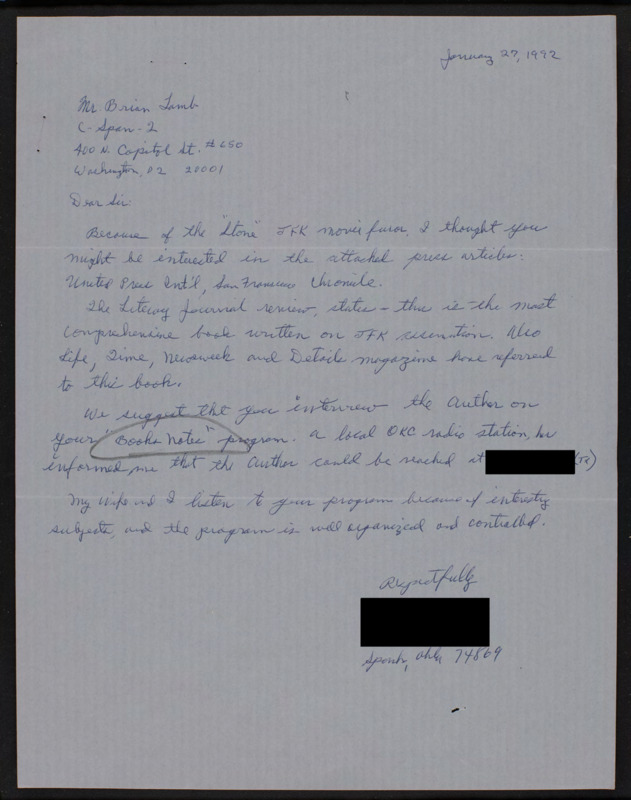 January 27, 1992
Mr. Brian Lamb
C-Span-2
400 N. Capitol St. #650
Washington, DC 20001
Dear Sir:
Because of the "Stone" JFK movie furor, I thought you
might be interested in the attached press articles:
United Press Int'l, San Francisco Chronicle.
The Literary Journal review, states - this is the most
comprehensive book written on JFK
Also
Life, Time, Newsweek and Details magazine have referred
to this book.
We suggest that you interview the author on
your "Books Notes" program. A local OKC radio station, has
informed me that the author could be reached at
My wife and I listen to your program because of interesting
subjects, and the program is well organized and controlled.
Respectfully
Okla 74869